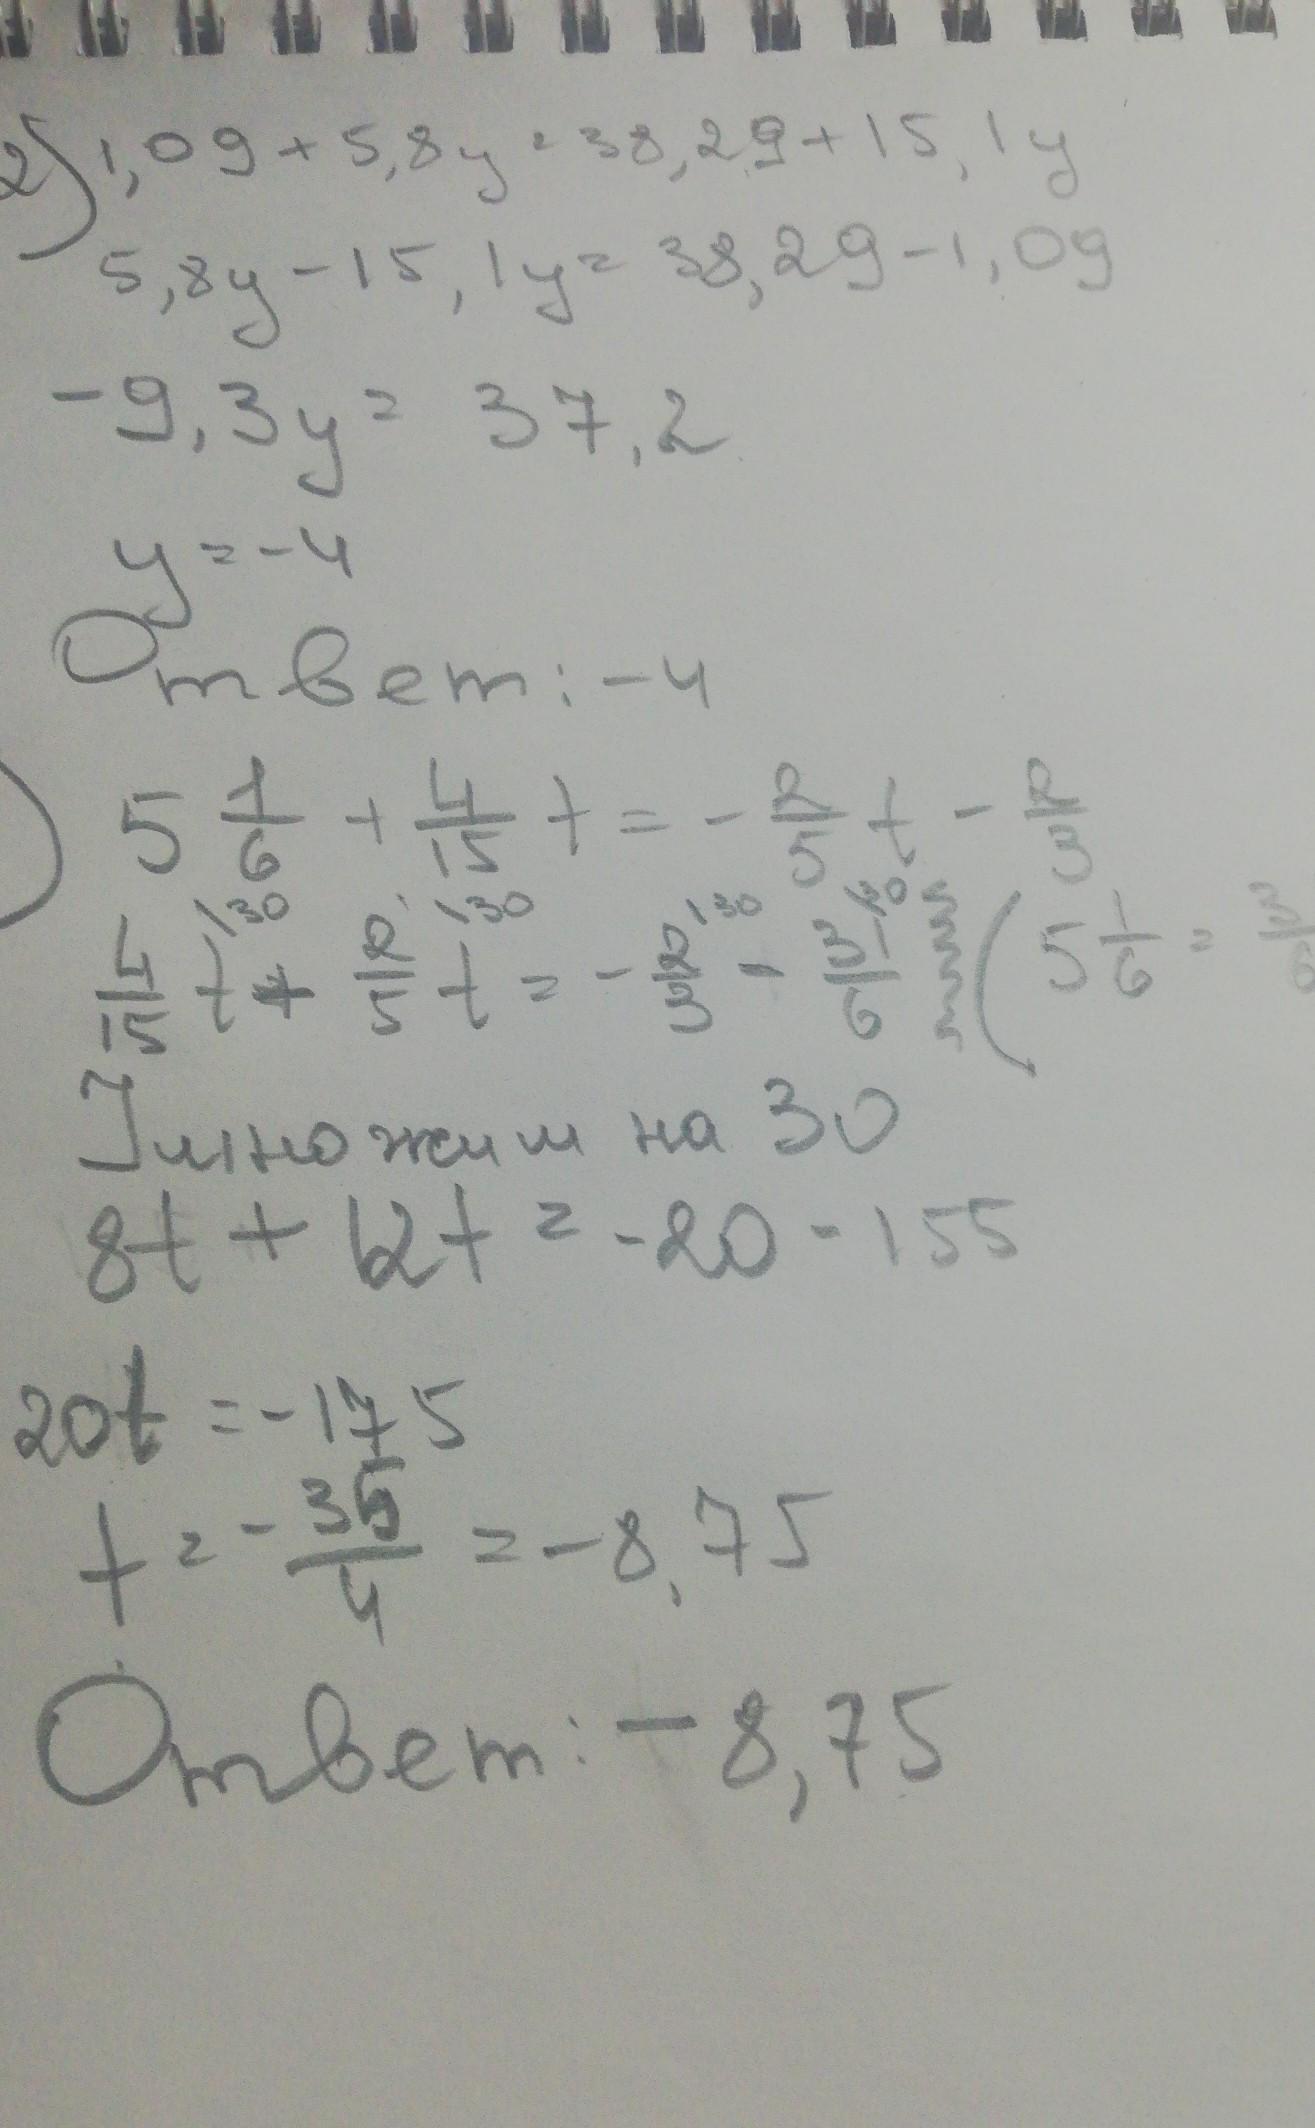 2) 1,09 + 5,8y = 38,29 + 15,1y
5,8y - 15,1y = 38,29 - 1,09
-9,3y = 37,2
y = -4
Ответ: -4
) 5 1/6 + 4/15 t = - 2/5 t - 2/3
4/15 t \30 + 2/5 t \30 = - 2/3 \30 - 31/6 \30 ( 5 1/6 =
Умножим на 30
8t + 12t = -20 - 155
20t = -175
t = - 35/4 = -8,75
Ответ: -8,75